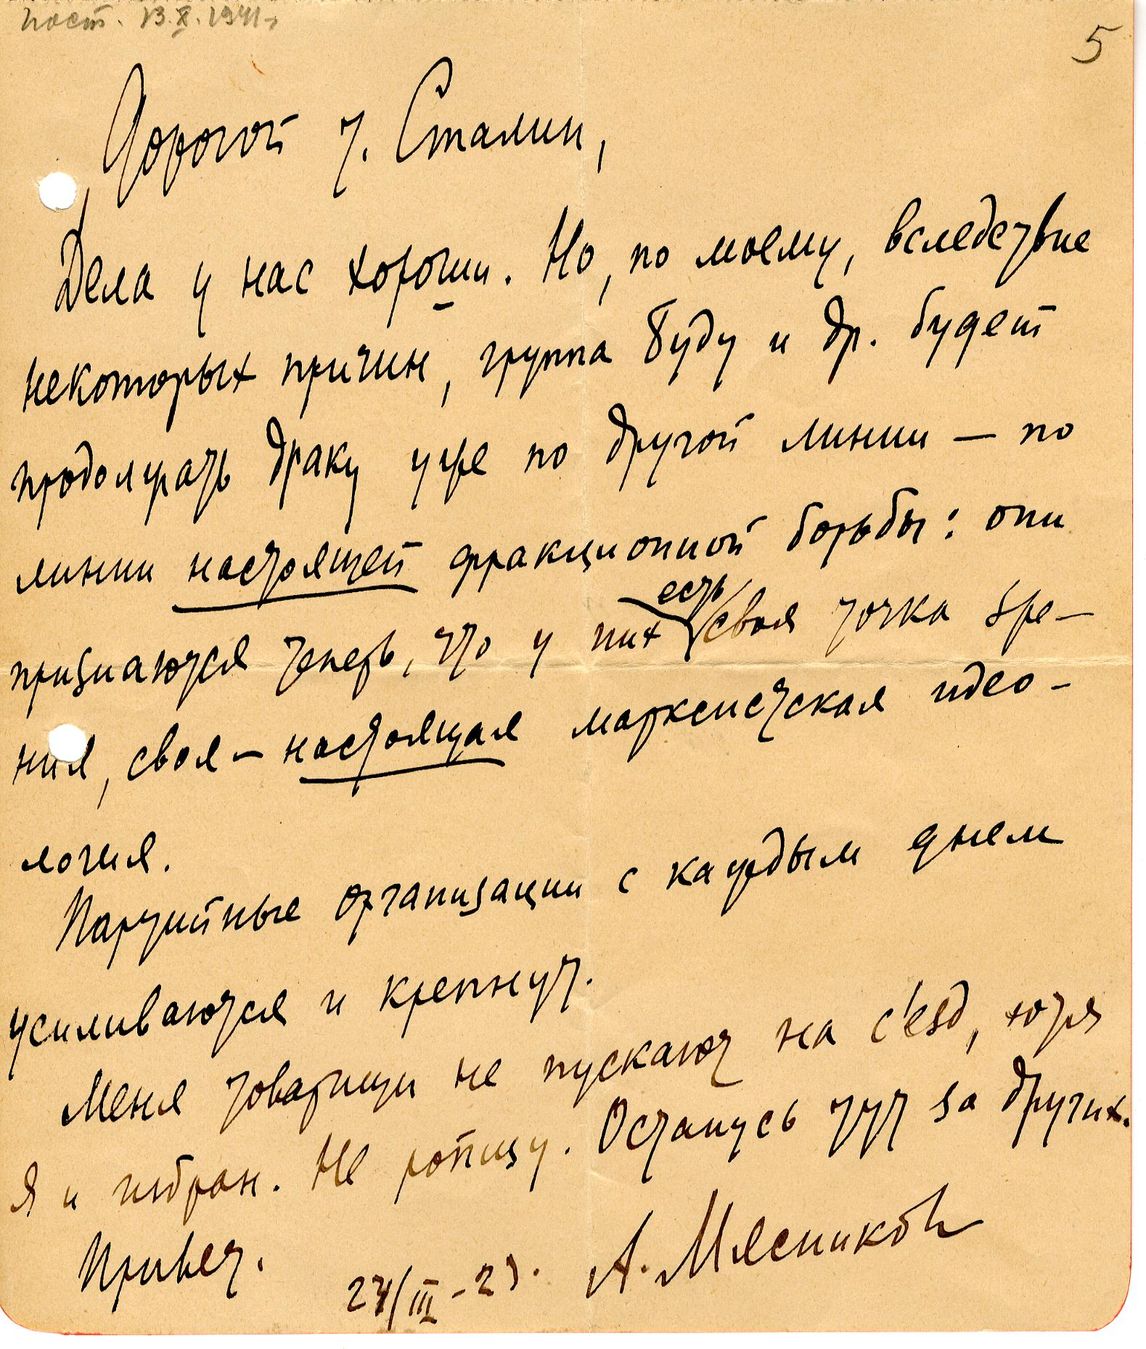 пост. 13.X.1941 г.
5
Дорогой т. Сталин,
Дела у нас хороши. Но, по моему, вследствие
некоторых причин, группа Буду и др. будет
продолжать драку уже по другой линии — по
линии настоящей фракционной борьбы: они
признаются теперь, что у них есть своя точка зре-
ния, своя — настоящая марксистская идео-
логия.
Партийные организации с каждым днем
усиливаются и крепнут.
Меня товарищи не пускают на с'езд, хотя
я и избран. Не ропщу. Останусь тут за других.
Привет.
27/III - 23. А. Мясников